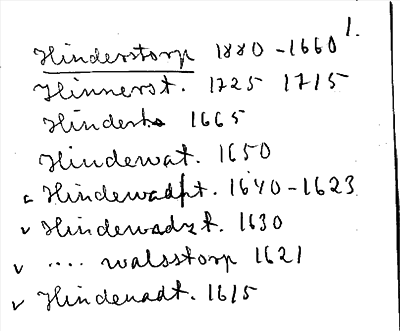 1.
Hinderstorp 1880-1660
Hinnerst. 1725 1715
Hinderto 1665
Hindewat. 1650
Hindewadpt. 1640-1623
v Hindewadzt. 1630
v .... walsstorp 1621
v Hindenadt. 1615